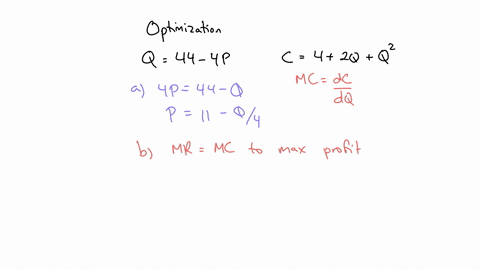 Optimization
Q = 44 - 4P
C = 4 + 2Q + Q²
MC = dC/dQ
a) 4P = 44 - Q
P = 11 - Q/4
b) MR = MC to max profit